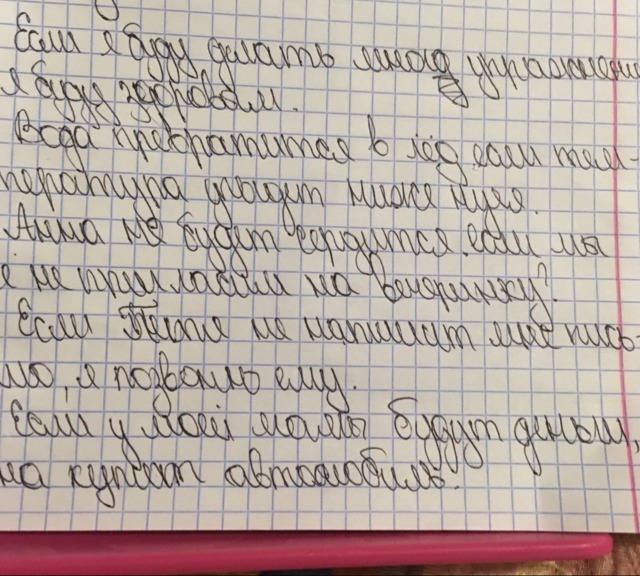 Если я буду делать много упражнени
я буду здоровым.
Вода превратится в лёд если тем-
пература упадет ниже нуля.
Анна не будет сердится если мы
ё не пригласим на вечеринку?
Если Петя не напишит мне пись-
мо, я позвоню ему.
Если у моей мамы будут деньги,
на купит автомобиль.